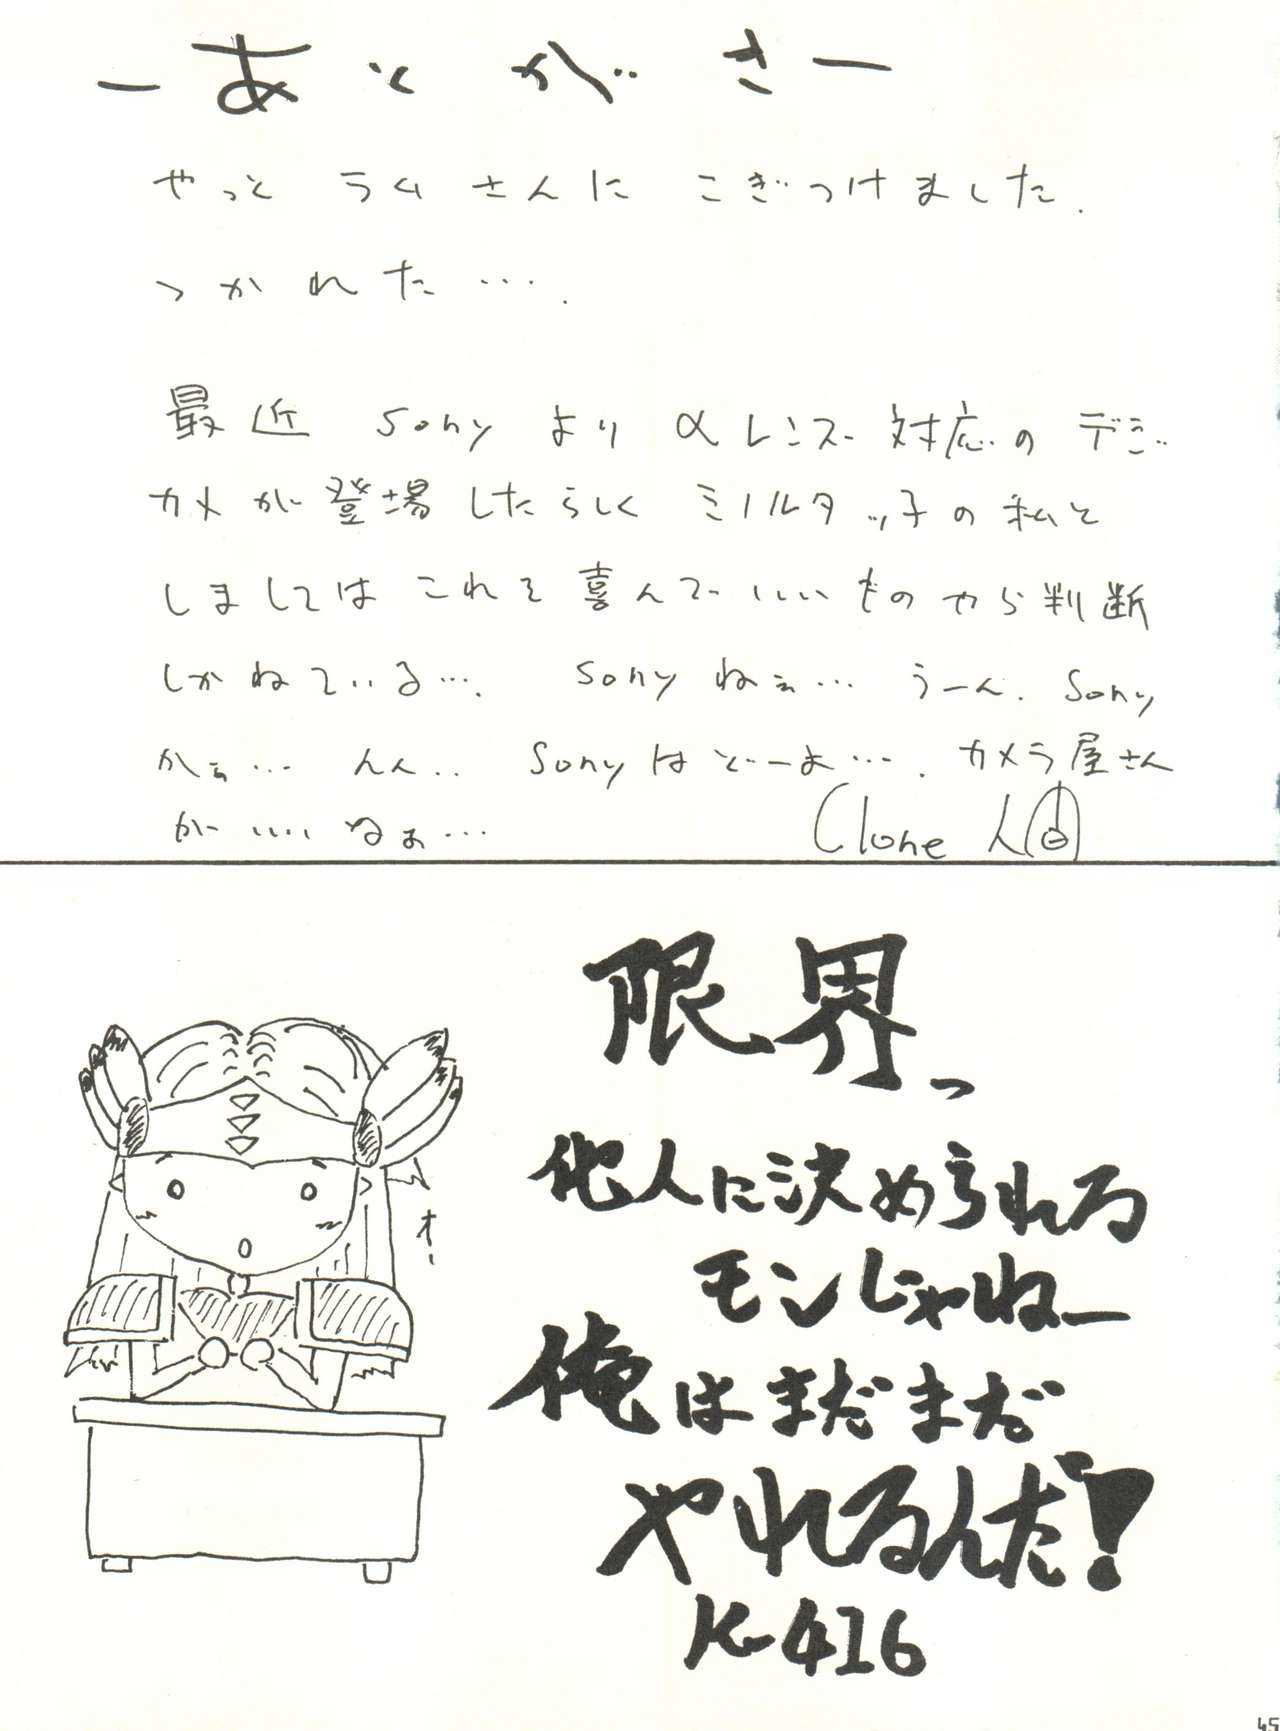 ー あとがき ー
やっと ラムさんに こぎつけました.
つかれた….
最近 Sony より αレンズ 対応の デジ
カメが登場したらしく ミノルタッ子の私と
しましては これを喜んでいいものやら判断
しかねている…. Sony ねぇ… うーん. Sony
かぁ… んん.. Sony はどーよ…. カメラ屋さん
が いいねぉ…
Clone 人間
限界っ
他人に決められる
モンじゃねー
オー
俺はまだまだ
やれるんだ!
K-416
45